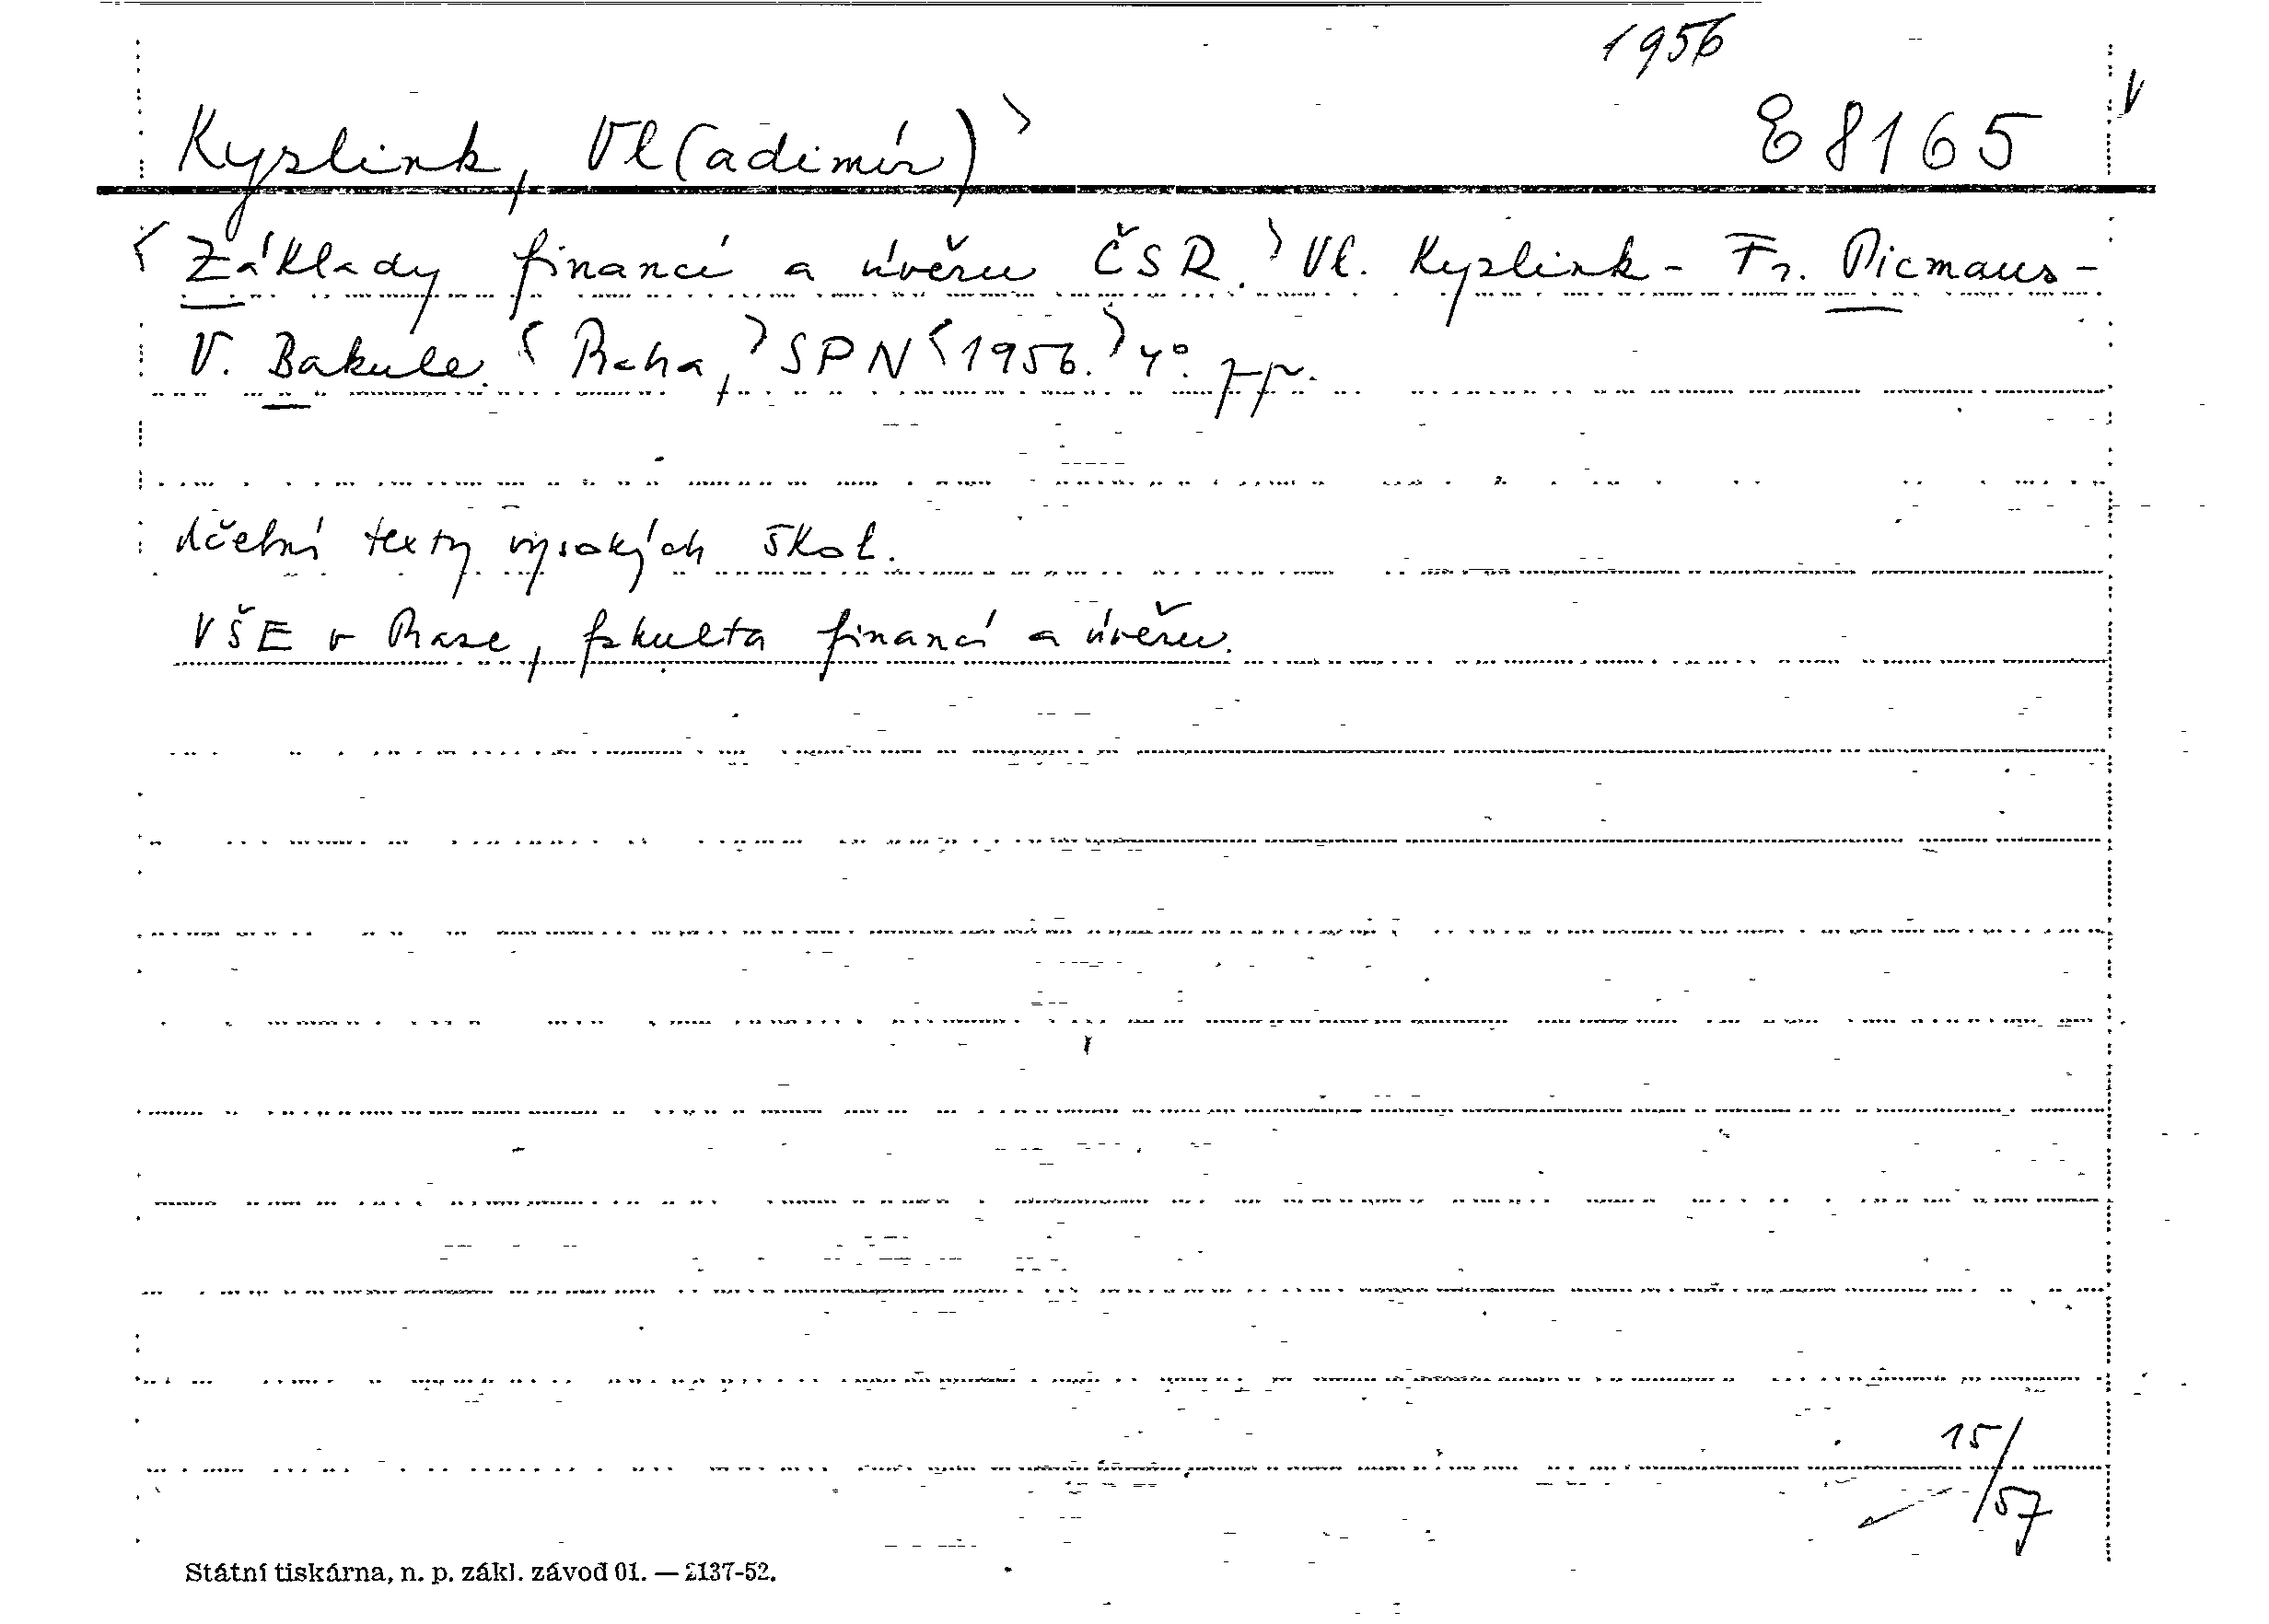 1956
Kyslink, Vl(adimír)〉 E 8165 V
〈Základy financí a úvěru ČSR.〉 Vl. Kyslink - Fr. Picmaus -
V. Bakule. 〈Praha,〉 SPN 〈1956.〉 4°.
Učební texty vysokých škol.
VŠE v Praze, fakulta financí a úvěru.
15/57
Státní tiskárna, n. p. zákl. závod 01. — 2137-52.